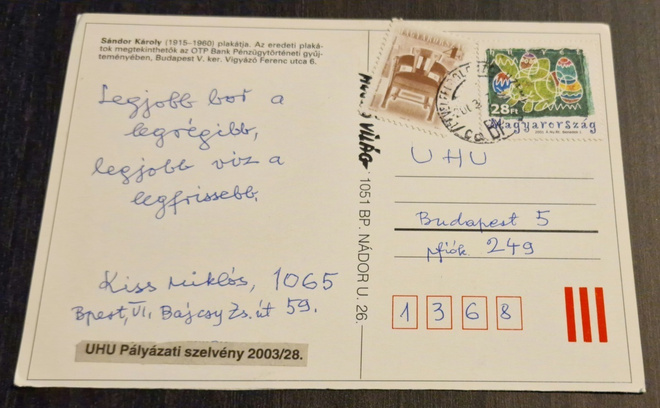 Sándor Károly (1915–1960) plakátja. Az eredeti plaká-
tok megtekinthetők az OTP Bank Pénzügytörténeti gyűj-
teményében, Budapest V. ker. Vigyázó Ferenc utca 6.
Legjobb bor a
legrégibb,
legjobb víz a
legfrissebb.
Kiss Miklós, 1065
Bpest, VI, Bajcsy Zs. út 59.
UHU Pályázati szelvény 2003/28.
VILÁG
1051 BP. NÁDOR U. 26.
MAGYARORSZÁG
28Ft
Magyarország
UHU
Budapest 5
pfiók 249
1368